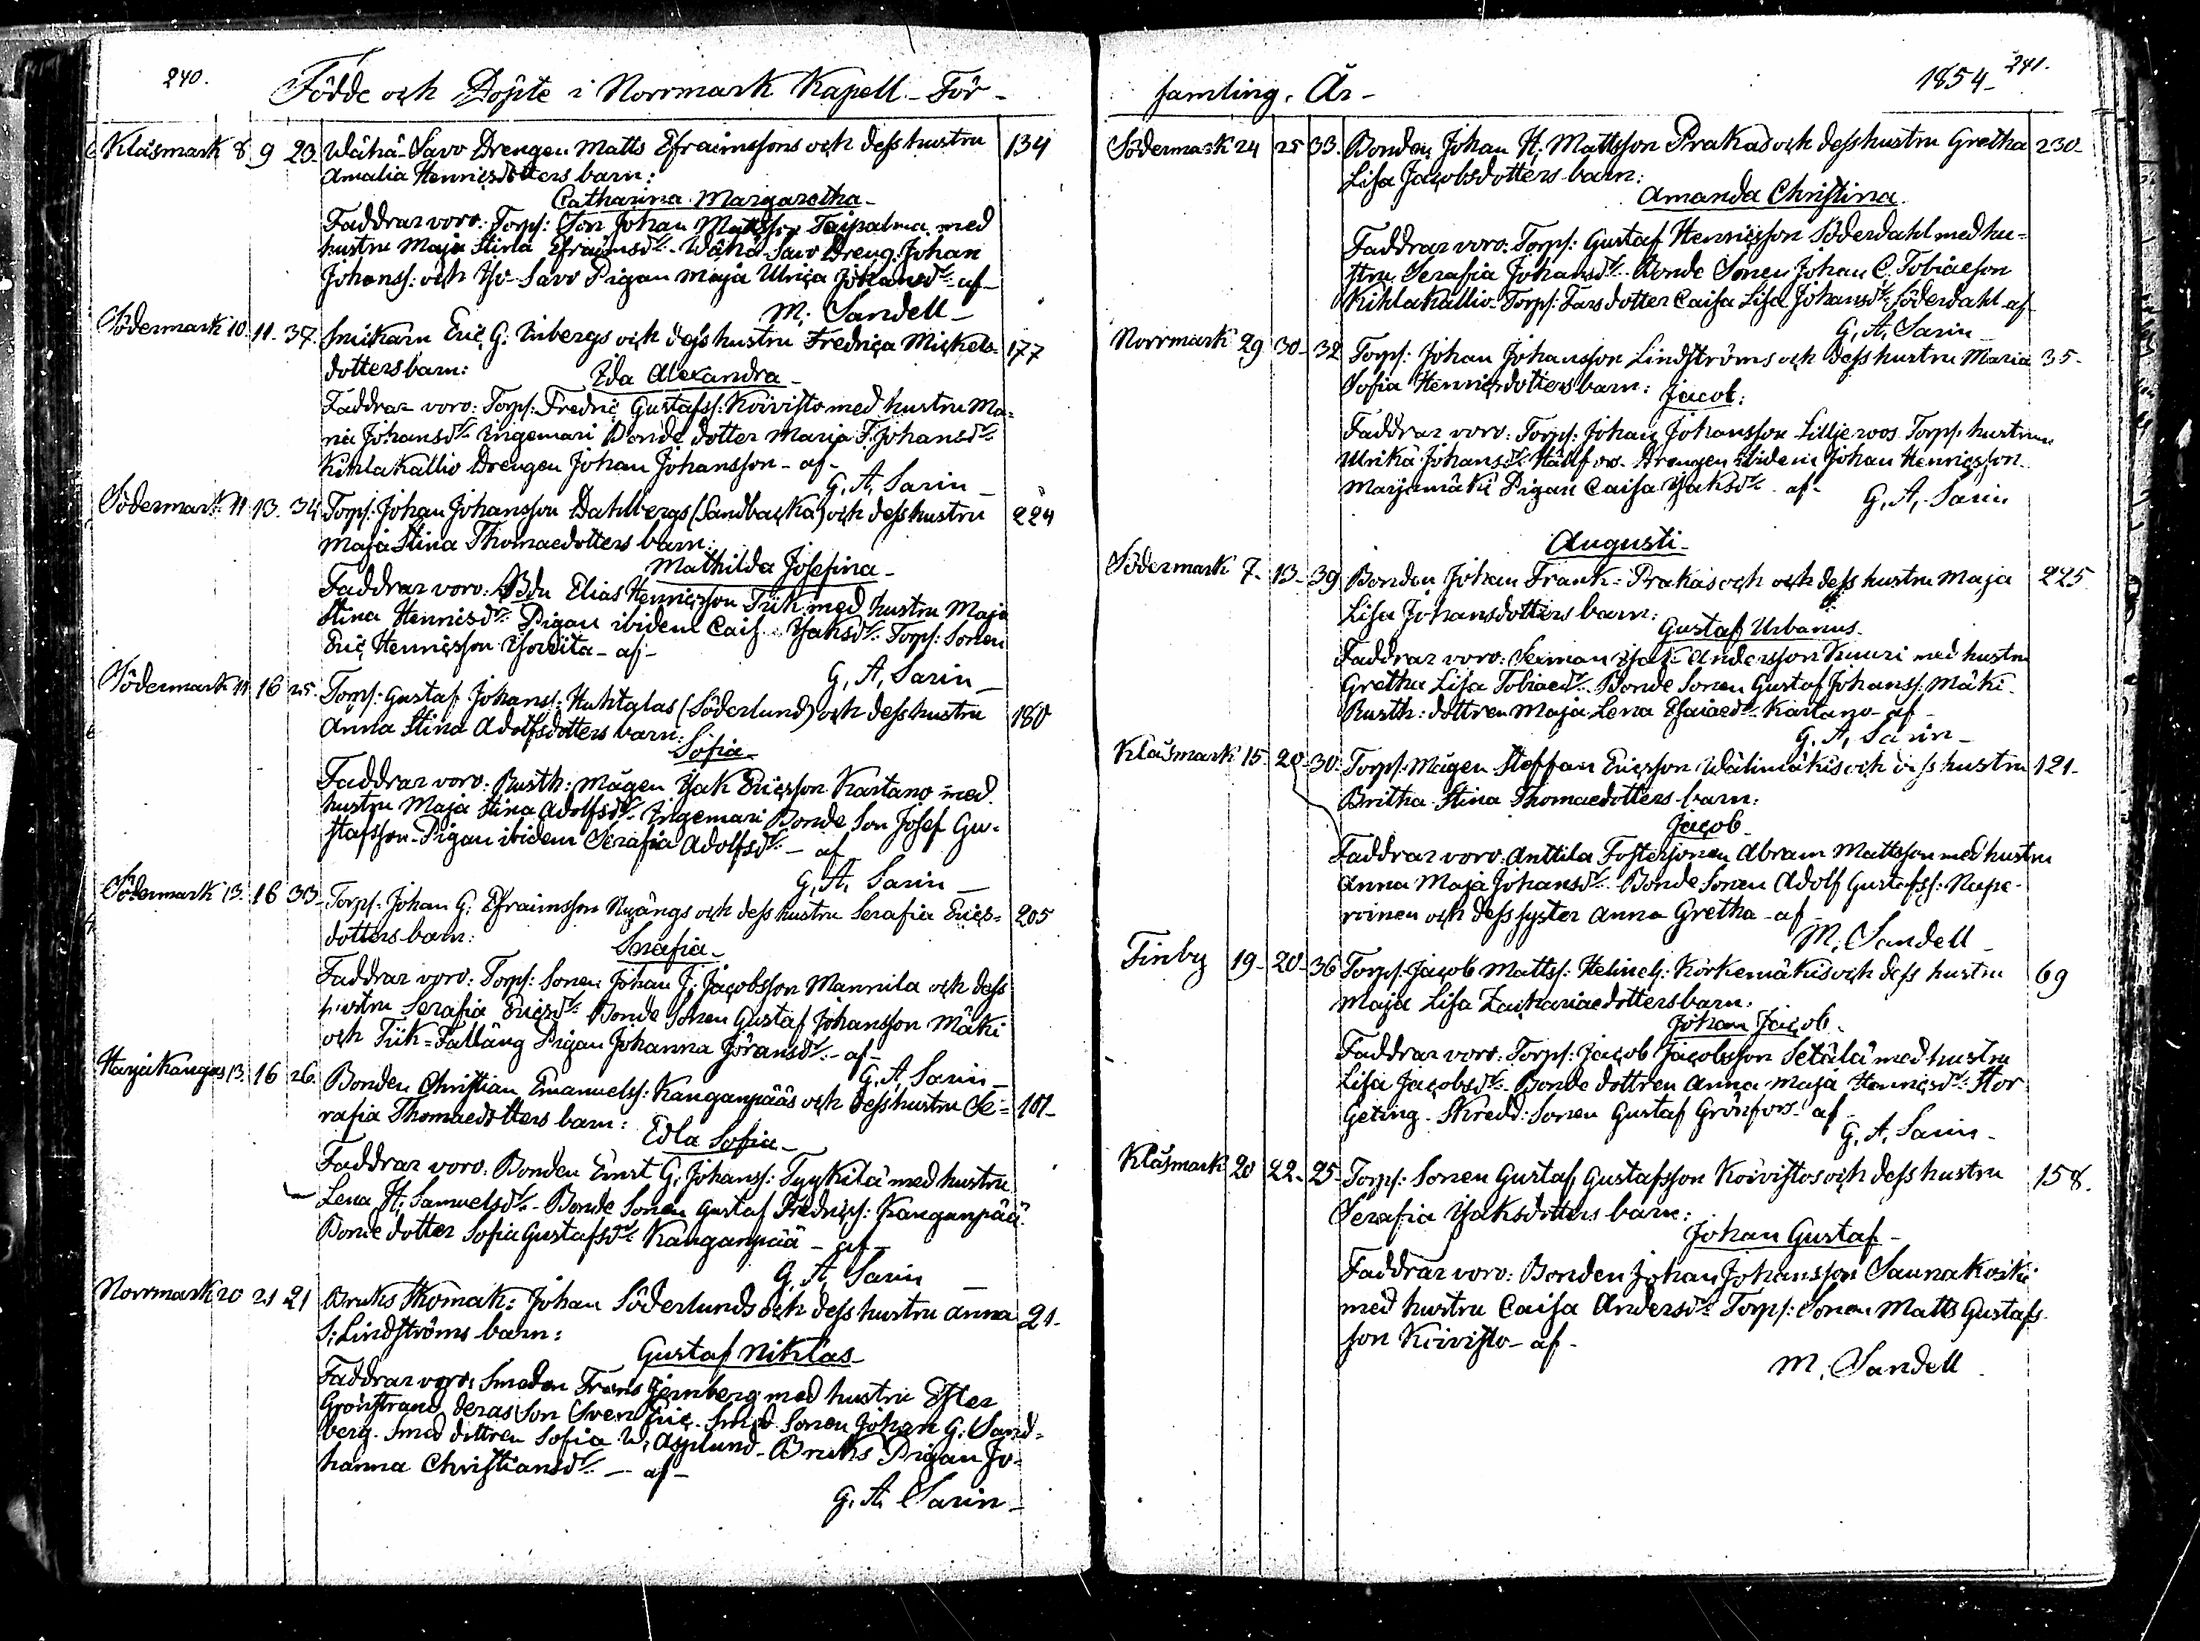 240.
Födde och Döpte i Norrmark Kapell-För-
Klåsmark 8. 9 23. Wähä-Savo Drengen Matts Efraimssons och dess hustru 134
Amalia Henricsdotters barn:
Catharina Margaretha-
Faddrar voro: Torp: Son Johan Mattsson Taipalma med
hustru Maja Stina Efraimsdr. Wähä-Savo Dreng. Johan
Johanss: och Iso-Savo Pigan Maja Ulrica Johansdr- af-
M. Sandell-
Södermark 10. 11. 37. Snickarn Eric G. Enbergs och dess hustru Fredrica Mickels- 177
dotters barn:
Ida Alexandra-
Faddrar voro: Torp: Fredric Gustafss: Koivisto med hustru Ma-
ria Johansdr. Ingemari Bonde dotter Maria F. Johansdr.
Kihlakallio Drengen Johan Johansson- af-
G. A. Sarin-
Södermark 11 13. 34 Torp: Johan Johansson Dahlbergs (Sandbacka) och dess hustru 224
Maja Stina Thomaedotters barn:
Mathilda Josefina-
Faddrar voro: Bdn Elias Henricsson Tiik med hustru Maja
Stina Henricsdr. Pigan ibidem Caisa Isaksdr. Torp: Sonen
Eric Henricsson - af-
G. A. Sarin-
Södermark 11 16 25. Torp: Gustaf Johanss: Huhtalas (Söderlund) och dess hustru 180
Anna Stina Adolfsdotters barn:
Sofia-
Faddrar voro: Rusth: Mågen Isak Ericsson Kartano med
hustru Maja Stina Adolfsdr. Ingemari Bonde Son Josef Gu-
stafsson- Pigan ibidem Serafia Adolfsdr.- af
G. A. Sarin-
Södermark 13. 16 33- Torp: Johan G. Efraimsson Nyängs och dess hustru Serafia Erics- 205
dotters barn:
Serafia-
Faddrar voro: Torp: Sonen Johan J. Jacobsson Mannila och dess
hustru Serafia Ericsdr. Bonde Sonen Gustaf Johansson Mäki
och Tiik=Falläng Pigan Johanna Jöransdr.- af-
G. A. Sarin-
Harjakangas 13. 16 26. Bonden Christian Emanuelss: Kanganpääs och dess hustru Se= 101-
rafia Thomaedotters barn:
Edla Sofia-
Faddrar voro: Bonden Ernst G. Johanss: Tyykilä med hustru
Lena H. Samuelsdr.- Bonde Sonen Gustaf Fredricss: Kanganpää.
Bonde dotter Sofia Gustafsdr. Kanganpää - af-
G. A. Sarin
Norrmark 20 21 21 Bruks Skomak: Johan Söderlunds och dess hustru Anna 21-
S. Lindströms barn:
Gustaf Niklas-
Faddrar voro: Smeden Frans Jernberg med hustru Ester
Grönstrand, deras Son Sven Eric. Smed Sonen Johan G. Sand-
berg. Smed dottren Sofia W. Asplund- Bruks Pigan Jo-
hanna Christiansdr.- af-
G. A. Sarin-
samling. År-
1854-
241.
Södermark 24 25 33. Bonden Johan H. Mattsson Prakas och dess hustru Gretha 230-
Lisa Jacobsdotters barn:
Amanda Christina.
Faddrar voro: Torp: Gustaf Henricsson Söderdahl med hu-
stru Serafia Johansdr. Bonde Sonen Johan C. Tobiaeson
Kihlakallio- Torp: Farsdotter Caisa Lisa Johansdr. Söderdahl af
G. A. Sarin-
Norrmark 29 30- 32 Torp: Johan Johansson Lindströms och dess hustru Maria 35-
Sofia Henricsdotters barn:
Jacob:
Faddrar voro: Torp: Johan Johansson Lilljeroos Torp: hustrun
Ulrika Johansdr. Drengen ibidem Johan Henricsson.
Marjamäki Pigan Caisa Isaksdr. af-
G. A. Sarin
Augusti-
Södermark 7- 13- 39 Bonden Johan Frank= Prakas och och dess hustru Maja 225.
Lisa Johansdotters barn:
Gustaf Urbanus.
Faddrar voro: Isak Andersson Knuuri med hustru
Gretha Lisa Tobiaedr. Bonde Sonen Gustaf Johanss: Mäki.
Rusth: dottren Maja Lena Esaiaedr. Kartano- af-
G. A. Sarin-
Klåsmark 15. 20. 30. Torp: Mågen Steffan Ericsson Wälimäkis och dess hustru 121-
Britha Stina Thomaedotters barn:
Jacob-
Faddrar voro: Anttila Fostersonen Abram Mattsson med hustru
Anna Maja Johansdr. Bonde Sonen Adolf Gustafss: Nupe-
roinen och dess syster Anna Gretha- af-
M. Sandell-
Finby 19- 20- 36 Torp: Jacob Mattss: Helines: Korkemäkis och dess hustru 69
Maja Lisa Zachariaedotters barn.
Johan Jacob.
Faddrar voro: Torp: Jacob Jacobsson Setälä med hustru
Lisa Jacobsdr. Bonde dottren Anna Maja Henricsdr. Stor
Geting. Skredd: Sonen Gustaf Grönfors. af-
G. A. Sarin-
Klåsmark 20 22- 25- Torp: Sonen Gustaf Gustafsson Koivistos och dess hustru 158.
Serafia Isaksdotters barn:
Johan Gustaf-
Faddrar voro: Bonden Johan Johansson Saunakoski
med hustru Caisa Andersdr. Torp: Sonen Matts Gustafs-
son Koivisto- af-
M. Sandell